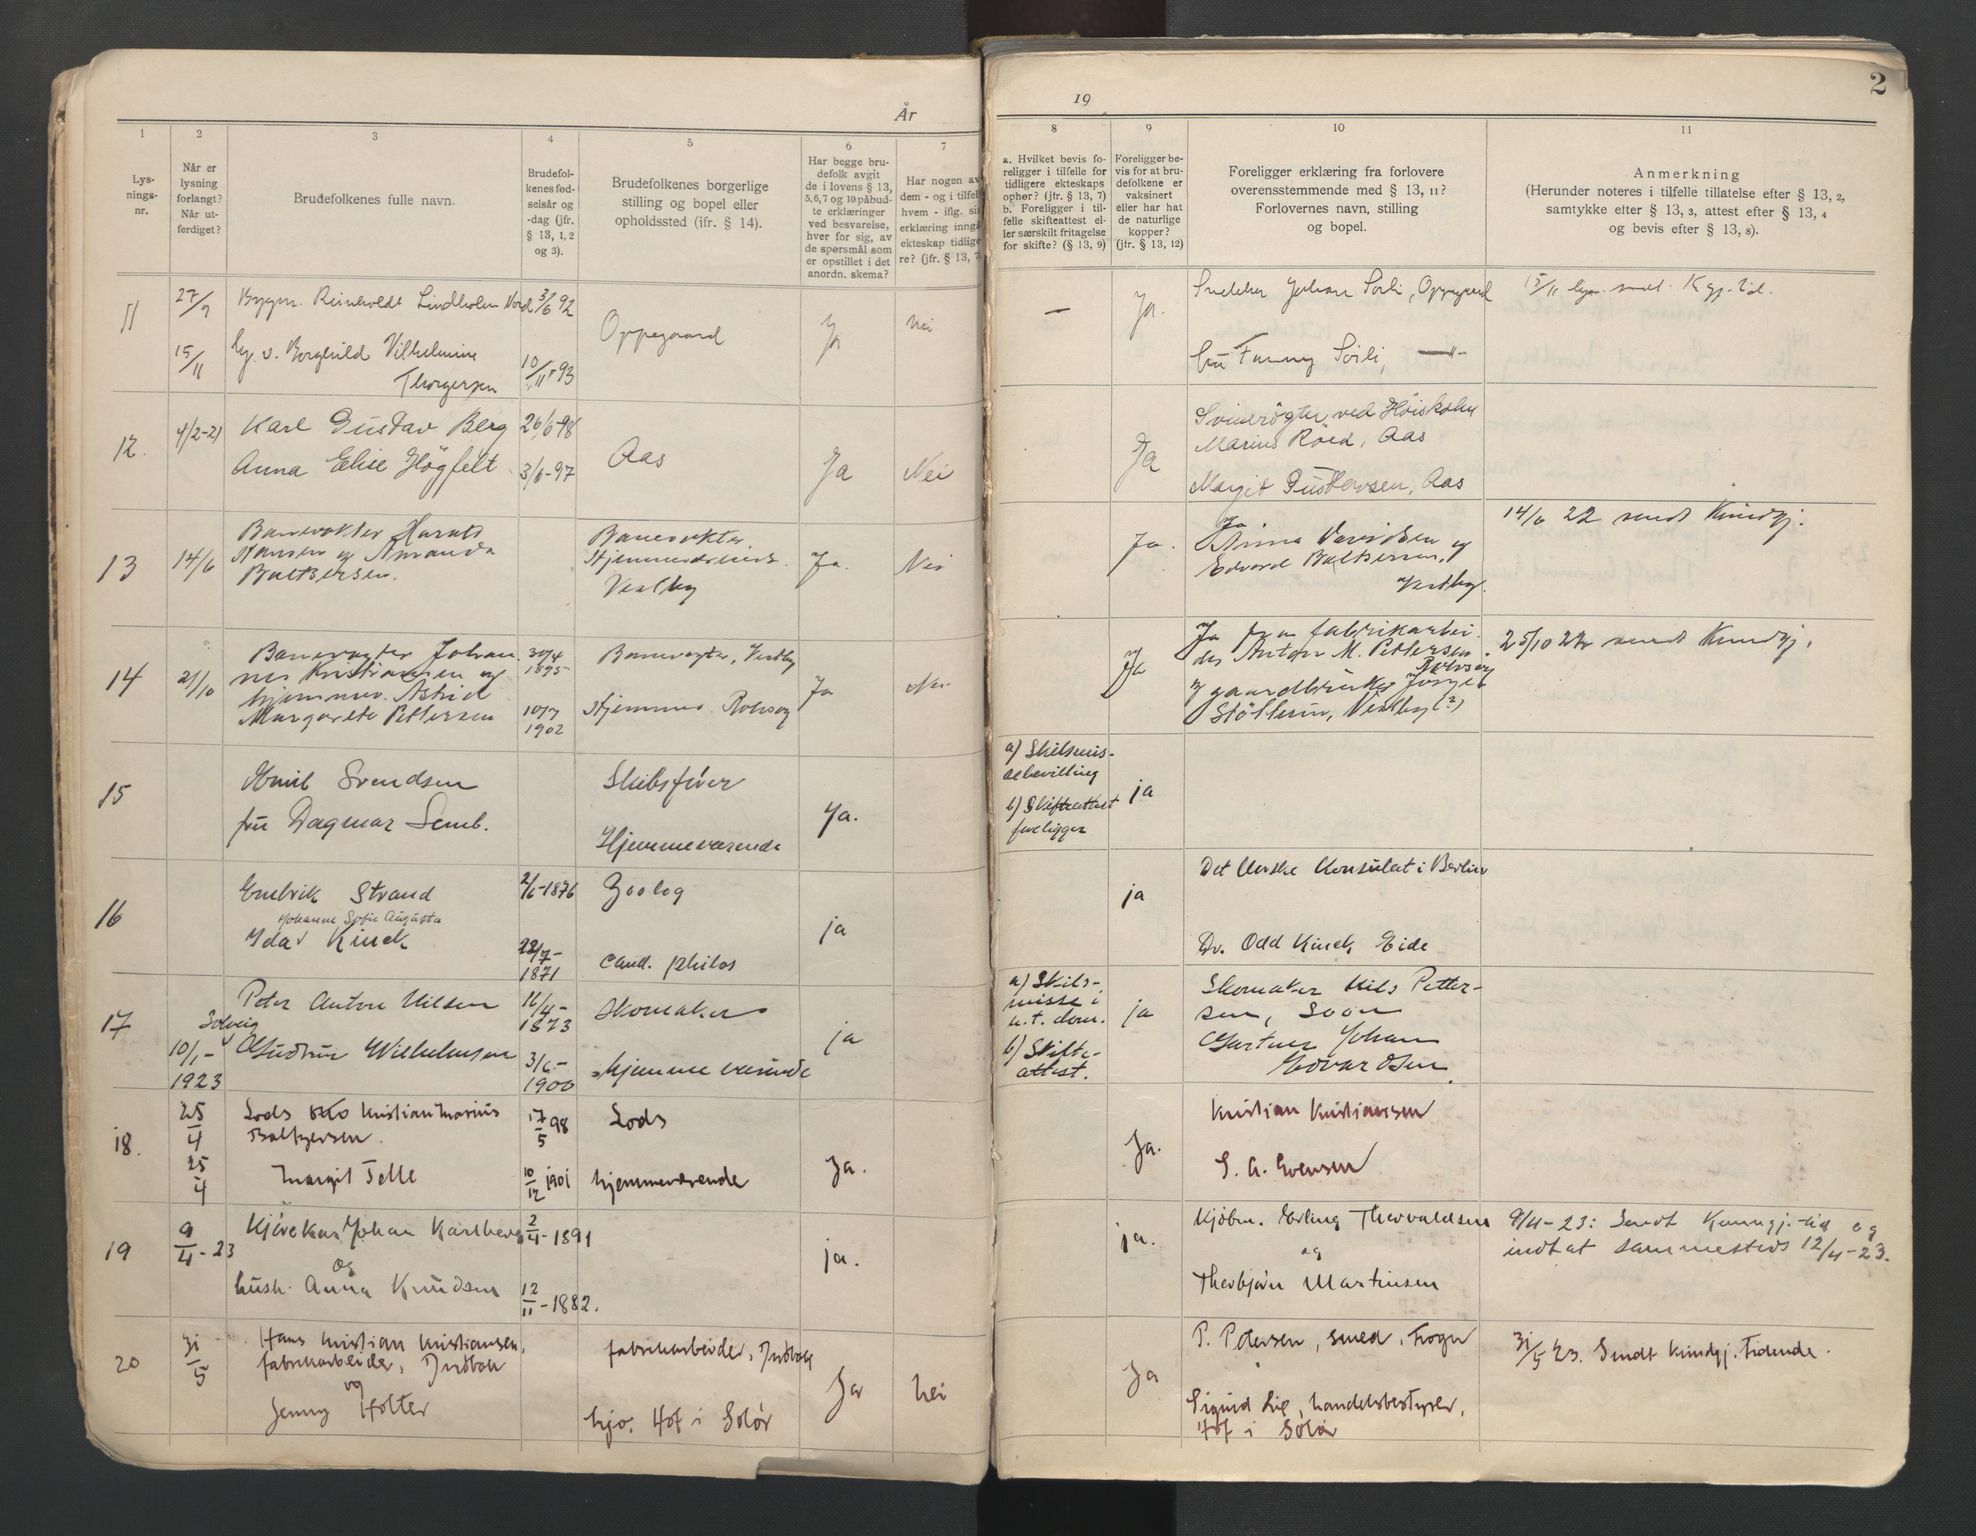 År
19
2
1
2
3
4
5
6
7
8
9
10
11
Lys-
nings-
nr.
Når er
lysning
forlangt?
Når ut-
ferdiget?
Brudefolkenes fulle navn.
Brudefol-
kenes fød-
selsår og
-dag (jfr.
§ 13, 1, 2
og 3).
Brudefolkenes borgerlige
stilling og bopel eller
opholdssted (jfr. § 14).
Har begge bru-
defolk avgit
de i lovens § 13,
5, 6, 7 og 10 påbud-
te erklæringer
ved besvarelse,
hver for sig, av
de spørsmål som
er opstillet i det
anordn. skema?
Har nogen av
dem - og i tilfelle
hvem - iflg. sin
erklæring inngå
ekteskap tidlige
re? (jfr. § 13, 7
a. Hvilket bevis fo-
religger i tilfelle for
tidligere ekteskaps
ophør? (jfr. § 13, 7)
b. Foreligger i til-
felle skifteattest el-
ler særskilt fritagelse
for skifte? (§ 13, 9)
Foreligger be-
vis for at bru-
defolkene er
vaksinert
eller har hat
de naturlige
kopper?
(jfr. § 13, 12)
Foreligger erklæring fra forlovere
overensstemmende med § 13, 11?
Forlovernes navn, stilling
og bopel.
Anmerkning
(Herunder noteres i tilfelle tillatelse efter § 13, 2,
samtykke efter § 13, 3, attest efter § 13, 4
og bevis efter § 13, 8).
11
27/9
15/11
Bygm. Reinholdt Lindholm Nord
og v. Borghild Vilhelmine
Thorgersen
3/6 92
10/11 93
Oppegaard
Ja
Nei
—
Ja.
Snekker Johan Sørli, Oppegaard
fru Fanny Sørli, —"—
15/11 lysn. sendt Kgj. tid.
12.
4/2-21
Karl Gustav Berg
Anna Elise Högfelt
26/6-98
3/6-97
Aas
Ja
Nei
Ja
Svinerøgter ved Høiskolen
Marius Röed, Aas
Margit Gustavsen, Aas
13
14/6
Banevokter Harald
Hansen og Amanda
Baltsersen.
Banevokter
Hjemmeværende.
Vestby
Ja.
Nei
Ja.
Ja
Anna Davidsen og
Edvard Baltsersen,
Vestby.
14/6 22 sendt Kundgj.
14
21/10
Banevogter Johan
nes Kristiansen og
hjemmev. Astrid
Margarete Pettersen
30/4
1895
10/7
1902
Banevogter, Vestby
Hjemmev.
Ja
Nei
Ja
Ja fra fabrikarbei-
der Anton M. Pettersen
og gaardbruker
Vestby (?)
25/10 22 sendt Kundgj.
15
Emil Svendsen
fru Dagmar Semb.
Skibsfører
Hjemmeværende
Ja.
a) Skilsmis-
sebevilling
b) Skifteattest
foreligger
ja
16
Embrik Strand
Johanne Sofie Augusta
Ida Kinck
2/6-1876
22/7-
1871
Zoolog
cand. philos
ja
ja
Det Norske Konsulat i Berlin
Dr. Odd Kinck Eide
17
10/1-
1923
Peter Anton Nilsen
Solveig
Gudrun Wilhelmsen
11/4-
1873
3/6-
1900
Skomaker
hjemmeværende
ja
a) Skils-
misse i
h.t. dom.
b) Skifte-
attest.
ja
Skomaker Nils Petter-
sen, Soon
Gartner Johan
Edvardsen.
18.
25/4
25/4
Lods Kristian Marius
Baltzersen.
Margit Telle
17/5 98
10/12 1901
Lods
hjemmeværende
Ja.
Ja.
Kristian Kristiansen
S. A. Evensen
19
9/4-23
Kjørekar Johan Karlberg
og
hush. Anna Knudsen
2/4-1891
12/11-1882.
ja.
ja.
Kjøbm. Erling Thorvaldsen
og
Thorbjørn Martinsen
9/4-23: Sendt Kunngj.-tid og
indtat sammesteds 12/4-23.
20
31/5
Hans Kristian Kristiansen,
fabrikarbeider, Indbak
og
Jenny Holter
fabrikarbeider, Indbak
hjv. Hof i Solør
Ja
Nei
Ja
P. Petersen, smed, Frogn
Sigurd Lie, handelsbestyrer,
Hof i Solør
31/5 23. Sendt Kundgj. Tidende.